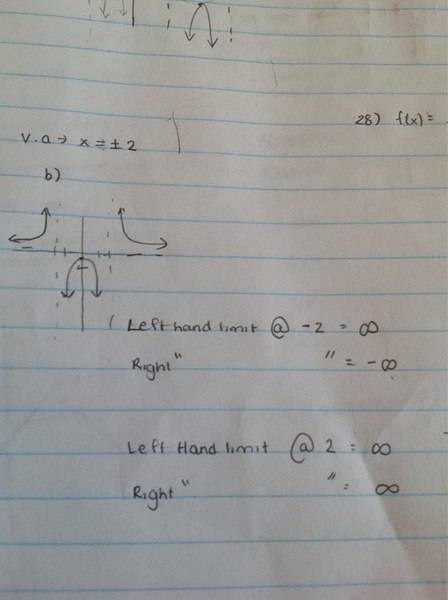 28) f(x) =
V.a → x = ± 2
b)
Left hand limit @ -2 = ∞
Right " " = -∞
Left Hand limit @ 2 = ∞
Right " " = ∞